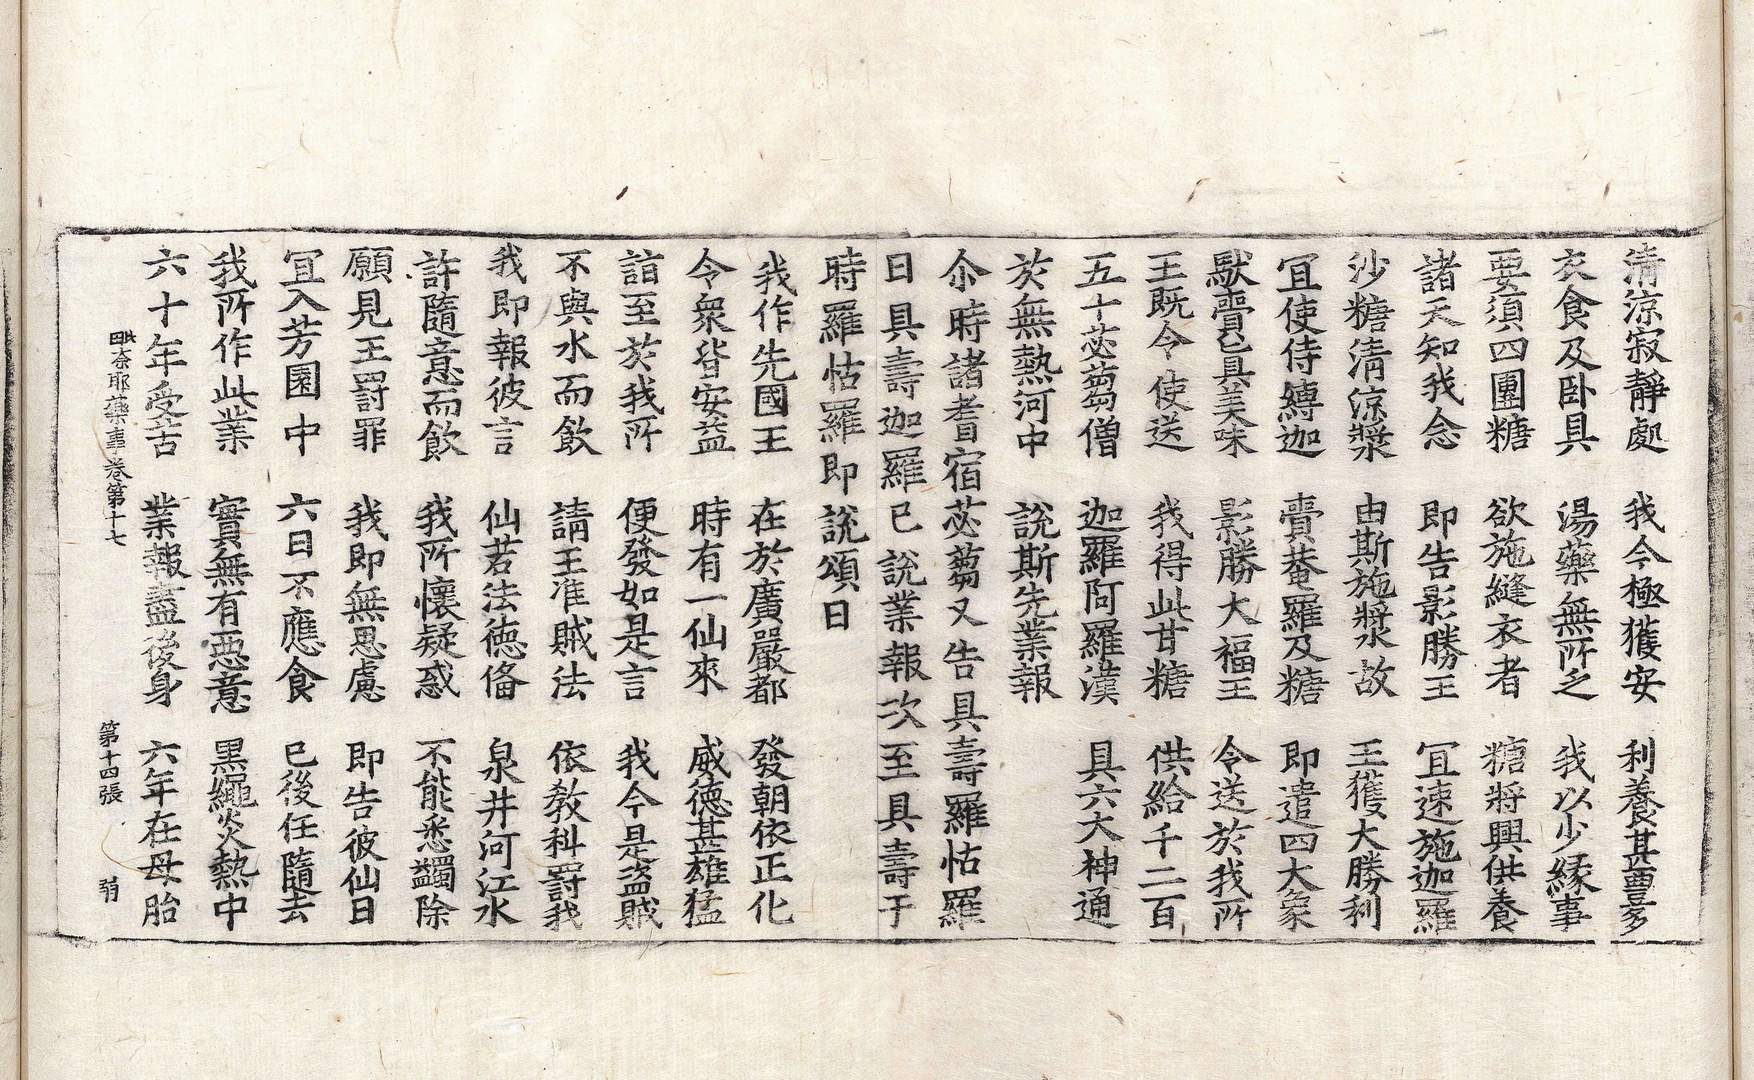 清涼寂靜處　我今極獲安　利養甚豊多
衣食及卧具　湯藥無所乏　我以少縁事
要須四團糖　欲施縫衣者　糖將興供養
諸天知我念　即告影勝王　冝速施迦羅
沙糖淸涼漿　由斯施漿故　王獲大勝利
冝使侍縛迦　賷菴羅及糖　即遣四大象
䭾賷邑具美味　影勝大福王　令送於我所
王既令使送　我得此甘糖　供給千二百
五十苾蒭僧　迦羅阿羅漢　具六大神通
於無熱河中　説斯先業報
尒時諸耆宿苾蒭又告具壽羅怙羅
曰具壽迦羅已説業報次至具壽于
時羅怙羅即説頌曰
我作先國王　在於廣嚴都　發朝依正化
令衆皆安益　時有一仙來　威德甚雄猛
詣至於我所　便發如是言　我今是盜賊
不與水而飲　請王准賊法　依教科罰我
我即報彼言　仙若法德俻　泉井河江水
許隨意而飲　我所懷疑惑　不能悉蠲除
願見王罰罪　我即無思慮　即告彼仙曰
冝入芳園中　六日不應食　已後任隨去
我所作此業　實無有惡意　黑繩炎熱中
六十年受苦　業報盡後身　六年在母胎
毗奈耶藥事卷第十七　第十四張